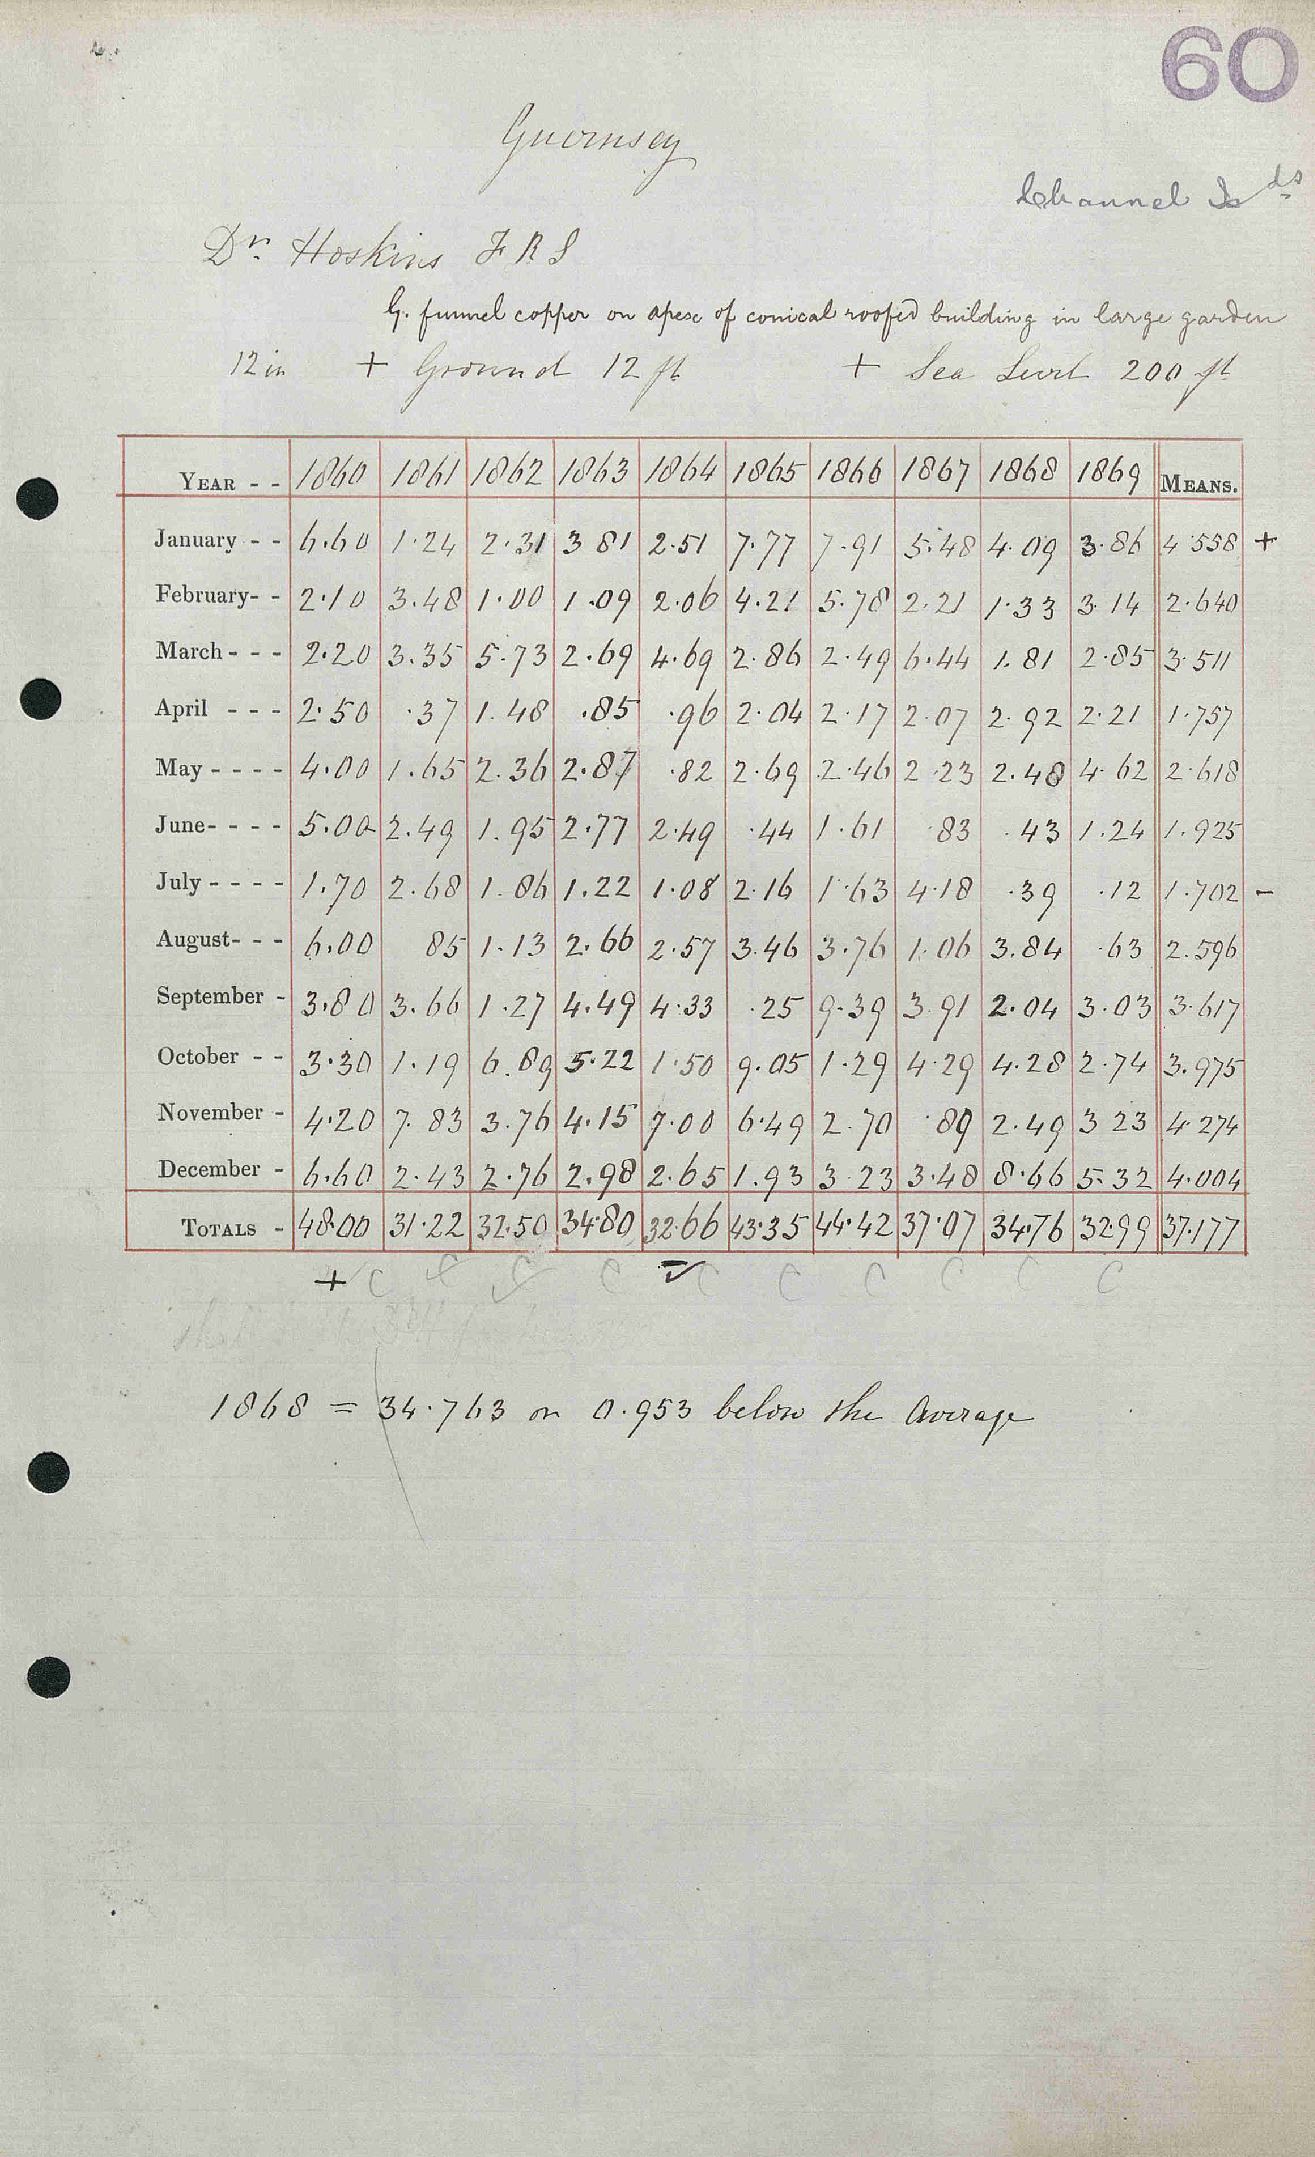 60
Guernsey
Channel Is ds
Dr. Hoskins F R S
G. funnel copper on apex of conical roofed building in large garden
12 in + Ground 12 ft + Sea Level 200 ft
YEAR - - 1860 1861 1862 1863 1864 1865 1866 1867 1868 1869 MEANS.
January - - 6.60 1.24 2.31 3 81 2.51 7.77 7.91 5.48 4.09 3.86 4 558 +
February- - 2.10 3.48 1.00 1.09 2.06 4.21 5.78 2.21 1.33 3.14 2.640
March - - - 2.20 3.35 5.73 2.69 4.69 2.86 2.49 6.44 1.81 2.85 3.511
April - - - 2.50 .37 1.48 .85 .96 2.04 2.17 2.07 2.92 2.21 1.757
May - - - - 4.00 1.65 2.36 2.87 .82 2.69 2.46 2 23 2.48 4.62 2.618
June- - - - 5.00 2.49 1.95 2.77 2.49 .44 1.61 .83 .43 1.24 1.925
July - - - - 1.70 2.68 1.86 1.22 1.08 2.16 1.63 4.18 .39 .12 1.702 -
August- - - 6.00 85 1.13 2.66 2.57 3.46 3.76 1.06 3.84 .63 2.596
September - 3.80 3.66 1.27 4.49 4.33 .25 9.39 3.91 2.04 3.03 3.617
October - - 3.30 1.19 6.89 5.22 1.50 9.05 1.29 4.29 4.28 2.74 3.975
November - 4.20 7.83 3.76 4.15 7.00 6.49 2.70 .89 2.49 3 23 4.274
December - 6.60 2.43 2.76 2.98 2.65 1.93 3.23 3.48 8.66 5.32 4.004
TOTALS - 48.00 31.22 32.50 34.80 32.66 43.35 44.42 37.07 34.76 32.99 37.177
+ C C C C C C C C C C
1868 = 34.763 or 0.953 below the average